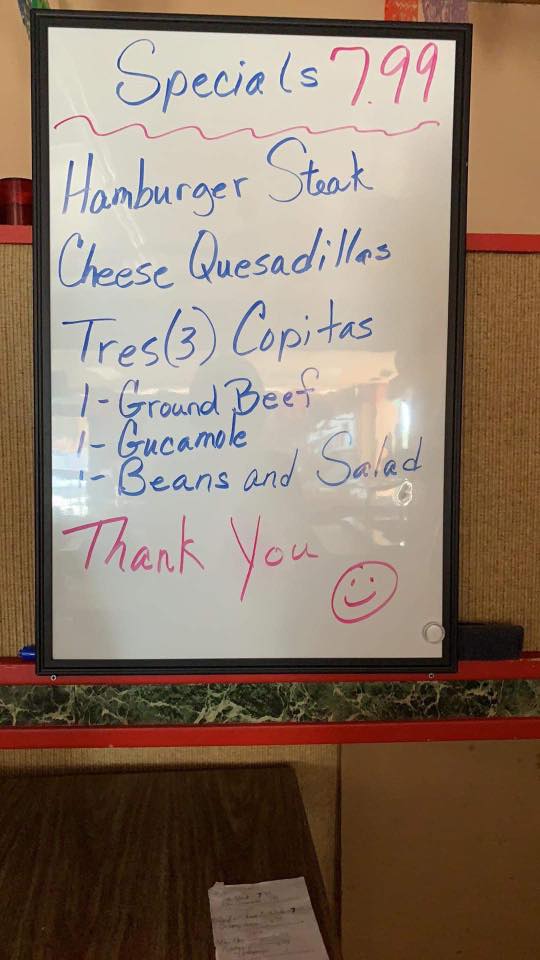 Specials 7.99
Hamburger Steak
Cheese Quesadillas
Tres(3) Copitas
1-Ground Beef
1-Gucamole
1-Beans and Salad
Thank You